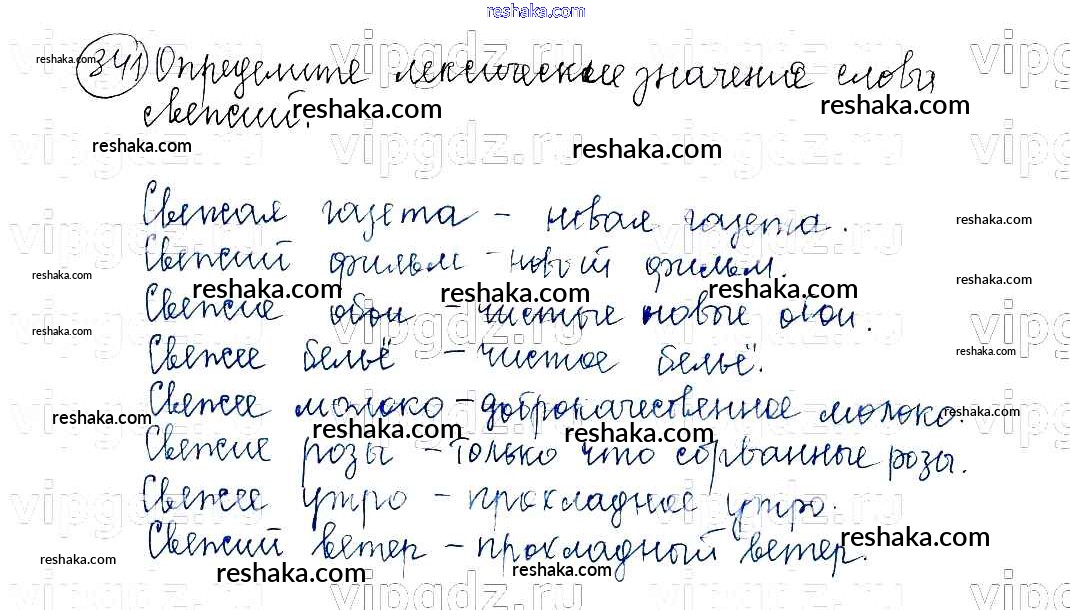 reshaka.com
341) Определите лексические значение слова
свежий.
Свежая газета – новая газета.
Свежий фильм – новый фильм.
Свежие обои – чистые новые обои.
Свежее бельё – чистое бельё.
Свежее молоко – доброкачественное молоко.
Свежие розы – только что сорванные розы.
Свежее утро – прохладное утро.
Свежий ветер – прохладный ветер.